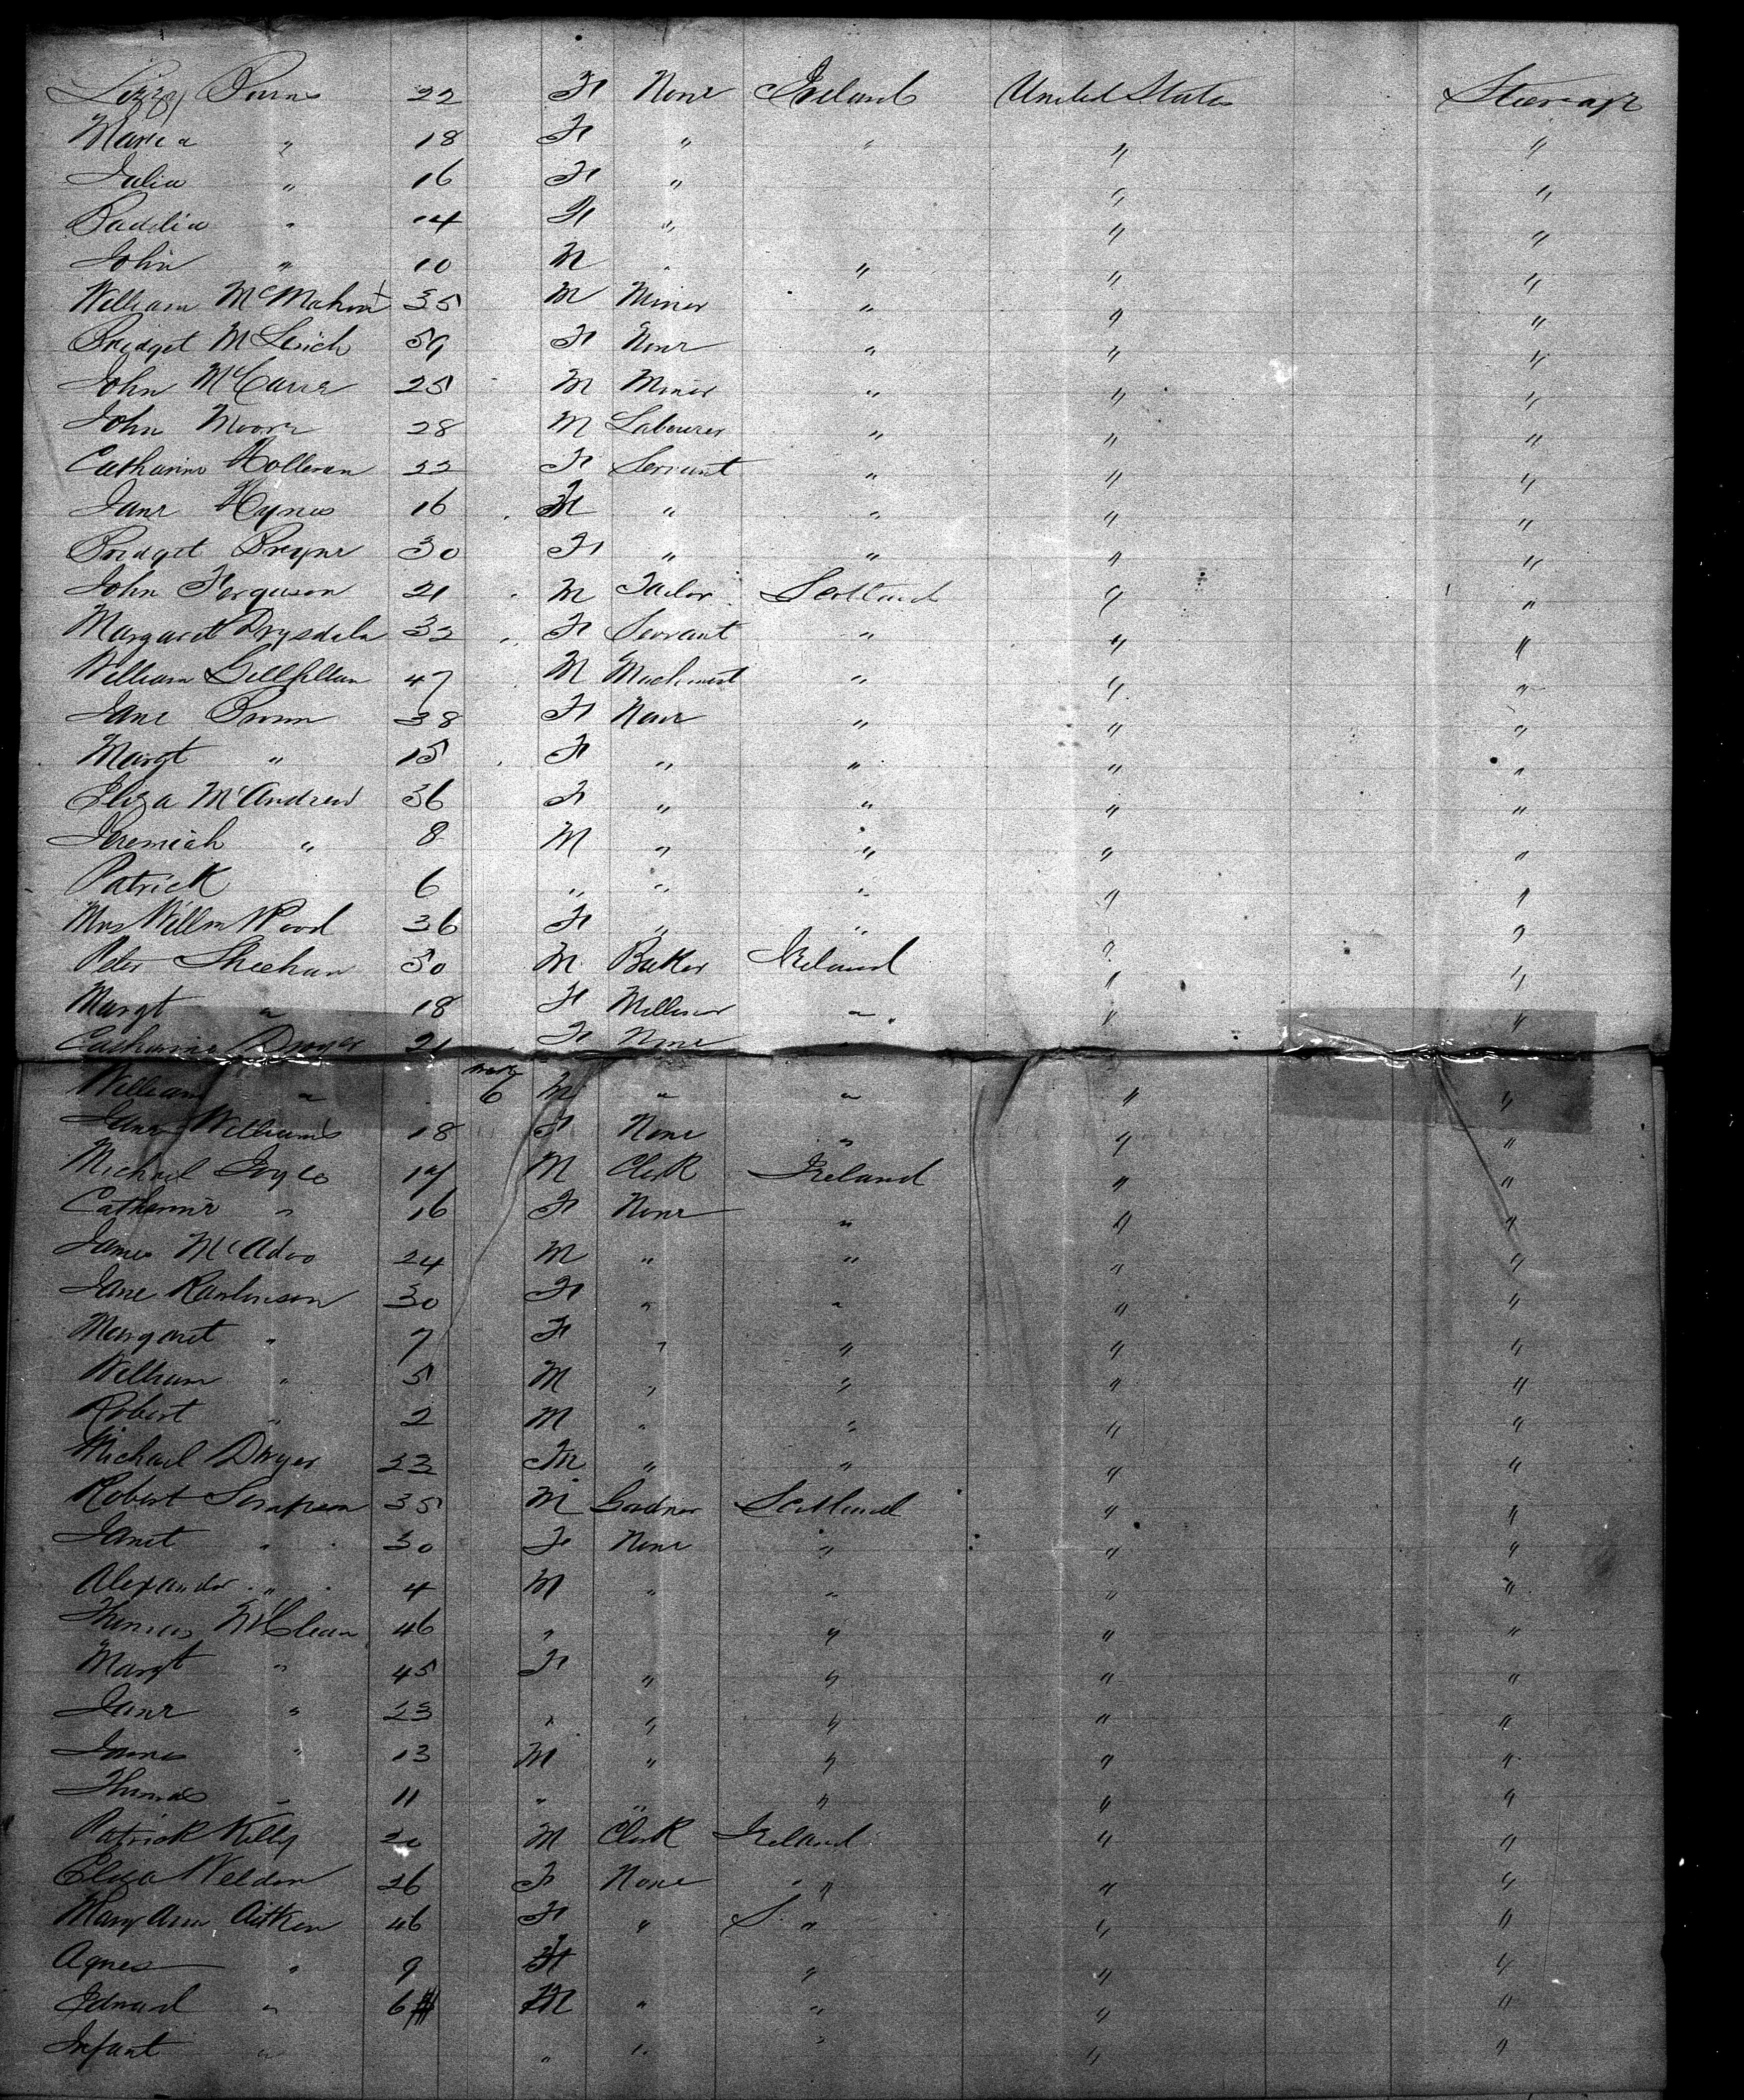 Lizzy Burns 22 F None Ireland United States Steerage
Maria " 18 F " " " "
Julia " 16 F " " "
Baddlia " 14 F " " "
John " 10 M " " " "
William McMahon 35 M Miner " " "
Bridget 59 F None " " "
John 25 M Miner " " "
John Moore 28 M Labourer " " "
Catharine Holleran 22 F Servant " " "
Jane Hynes 16 F " " " "
Bridget Bryne 30 F " " " "
John Ferguson 21 M Tailor Scotland " "
Margaret Drysdale 32 F Servant " " "
William Gillfillan 47 M Machinist " " "
Jane 38 F None " " "
Margt " 15 F " " " "
Eliza McAndrew 36 F " " " "
Jeremiah " 8 M " " " "
Patrick 6 " " " " "
Mrs Willm Wood 36 F " " " "
Peter Sheehan 30 M Baker Ireland " "
Margt " 18 F Milliner " " "
Catharine Dwyer 21 F None
William " 6 M " " " "
Jane Williams 18 F None " " "
Michael Joyce 17 M Clerk Ireland " "
Catherine " 16 F None " " "
James McAdoo 24 M " " " "
Jane Rawlinson 30 F " " " "
Margaret " 7 F " " " "
William " 5 M " " " "
Robert " 2 M " " " "
Michael Dwyer 22 M " " " "
Robert Simpson 35 M Gardner Scotland " "
Janet " 30 F None " " "
Alexander " 4 M " " " "
Thomas McClean 46 " " " "
Margt " 45 F " " " "
Jane " 23 " " " " "
James " 13 M " " " "
Thomas " 11 " " " " "
Patrick Kelly 20 M Clerk Ireland " "
Eliza Weldon 26 F None " " "
Mary Ann Aitken 46 F " S. " " "
Agnes " 9 F " " "
Edward " 6 M " " " "
Infant " " " " " "